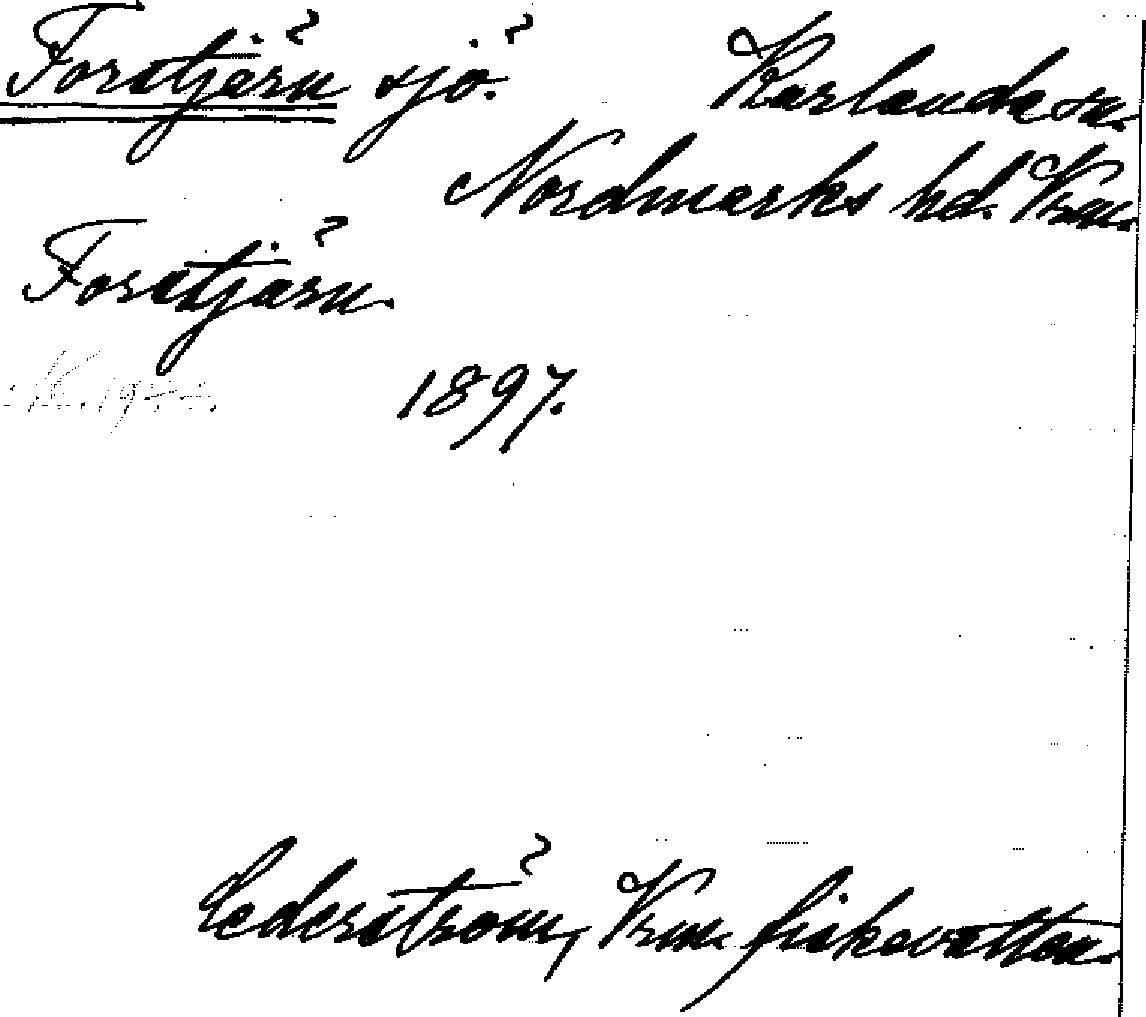 Forstjärn sjö. Karlanda sn.
Nordmarks hd. Vrm.
Forstjärn
1897.
Cederström, Vrm. fiskevatten.